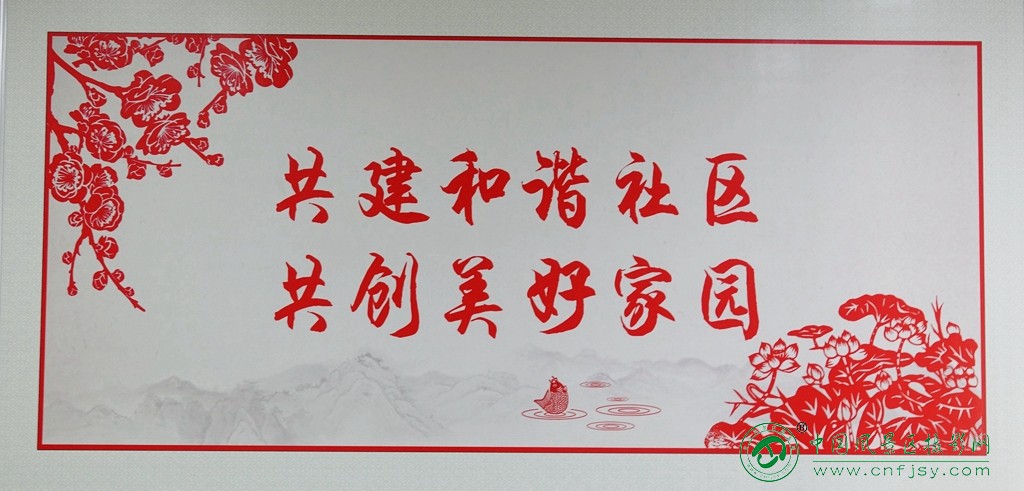 共建和谐社区
共创美好家园
®
中国风景区摄影网
www.cnfjsy.com